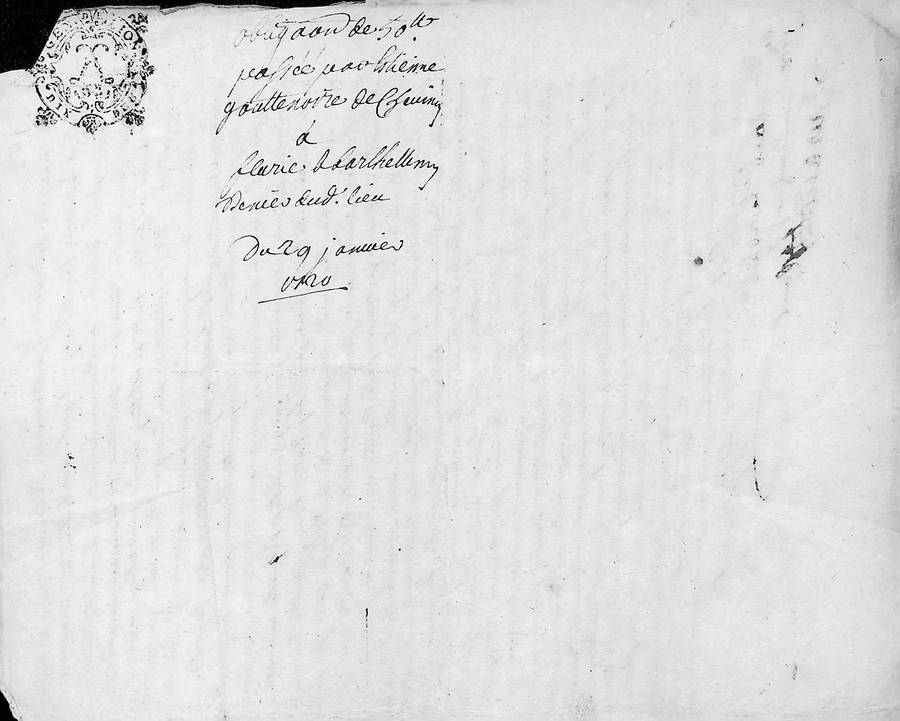 obligaon de 50ᵗᵗ
passée par Estienne
gouttenoire de
à
fleurie & barthellemy
dud.ᵗ lieu
Du 29 janvier